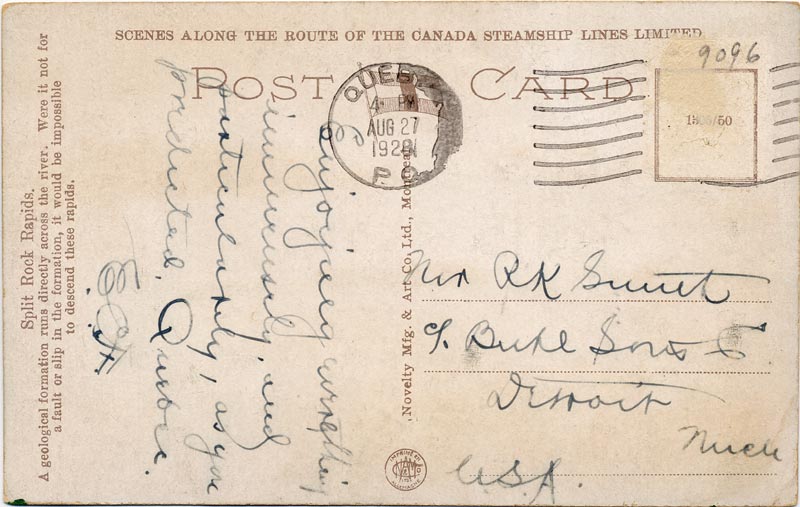 SCENES ALONG THE ROUTE OF THE CANADA STEAMSHIP LINES LIMITED
POST CARD
9096
1500/50
QUEBEC
4- PM
AUG 27
1928
P.Q.
Split Rock Rapids.
A geological formation runs directly across the river. Were it not for
a fault or slip in the formation, it would be impossible
to descend these rapids.
Enjoying everything
immensely, and
particularly, as you
predicted, Quebec.
E.
Novelty Mfg. & Art Co. Ltd., Montreal
Mr R K
c/o Buhl Sons C
Detroit
Mich
U.S.A.